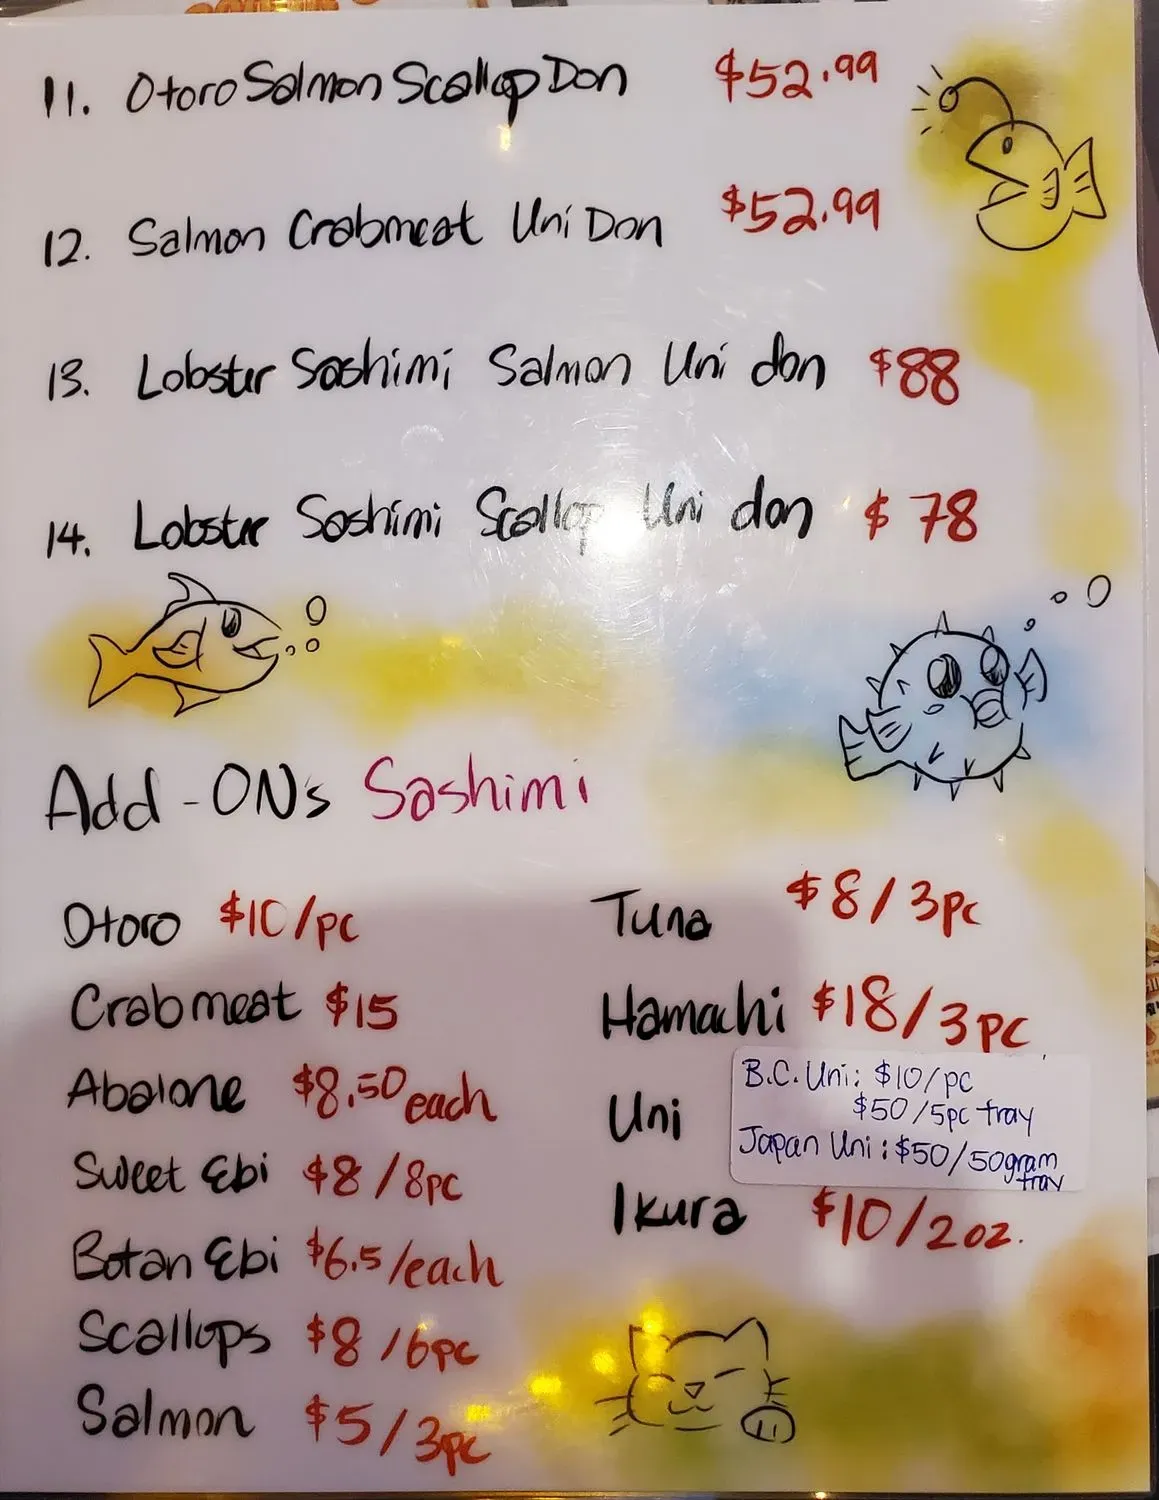 11. Otoro Salmon Scallop Don $52.99
12. Salmon Crabmeat Uni Don $52.99
13. Lobster Sashimi Salmon Uni don $88
14. Lobster Sashimi Scallop Uni don $78
Add-ONs Sashimi
Otoro $10/pc
Crabmeat $15
Abalone $8.50 each
Sweet Ebi $8/8pc
Botan Ebi $6.5/each
Scallops $8/6pc
Salmon $5/3pc
Tuna $8/3pc
Hamachi $18/3pc
Uni
B.C. Uni: $10/pc
$50/5pc tray
Japan Uni: $50/50gram
tray
Ikura $10/2oz.